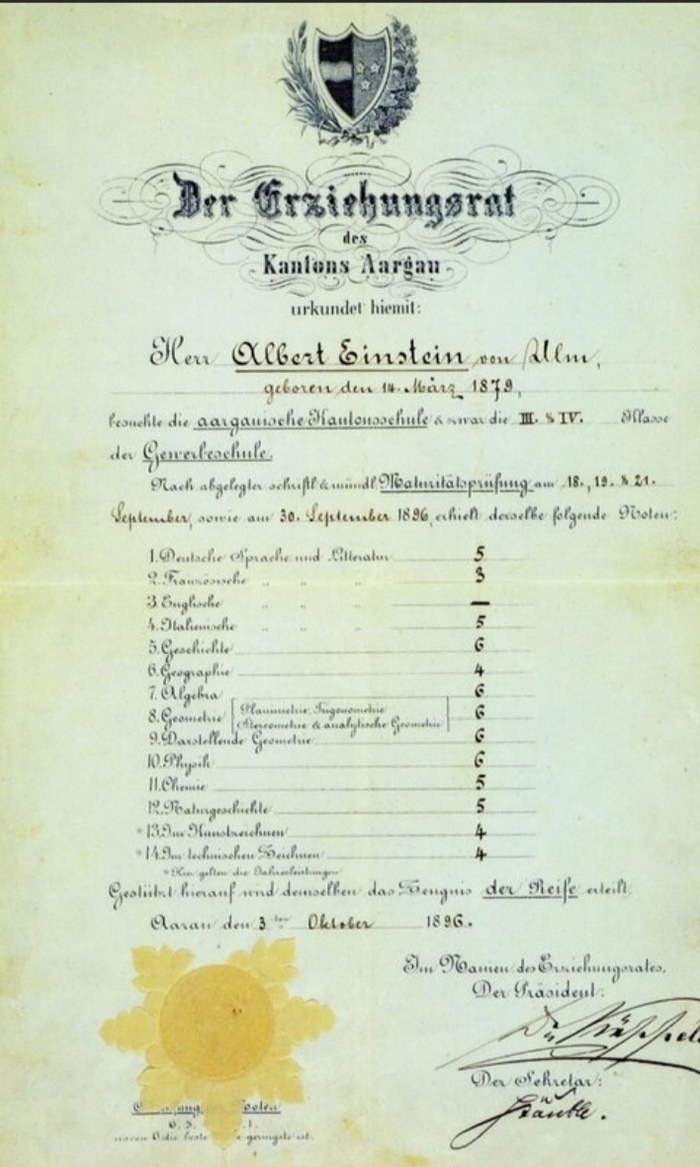 Der Erziehungsrat
des
Kantons Aargau
urkundet hiemit:
Herr Albert Einstein von Ulm,
geboren den 14. März 1879,
besuchte die aargauische Kantonsschule & zwar die III. & IV. Klasse
der Gewerbeschule.
Nach abgelegter schriftl. & mündl. Maturitätsprüfung am 18., 19. & 21.
September, sowie am 30. September 1896, erhielt derselbe folgende Noten:
1. Deutsche Sprache und Litteratur 5
2. Französische „ „ „ 3
3. Englische „ „ „ —
4. Italienische „ „ „ 5
5. Geschichte 6
6. Geographie 4
7. Algebra 6
8. Geometrie [Planimetrie, Trigonometrie 6
Stereometrie & analytische Geometrie]
9. Darstellende Geometrie 6
10. Physik 6
11. Chemie 5
12. Naturgeschichte 5
* 13. Im Kunstzeichnen 4
* 14. Im technischen Zeichnen 4
* Hier gelten die Jahresleistungen
Gestützt hierauf wird demselben das Zeugnis der Reife erteilt.
Aarau den 3ten Oktober 1896.
Im Namen des Erziehungsrates,
Der Präsident:
Der Sekretär:
Stäuble.
Noten
6. 5. 1.
wovon 6 die beste geringste ist.